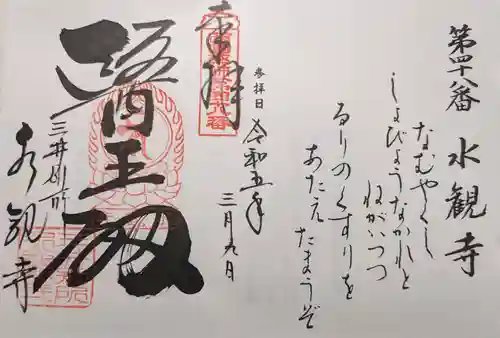 第四十八番 水観寺
なむやくし
しょびょうなかれと
ねがいつつ
るりのくすりを
あたえたまうぞ
奉拝
参拝日 令和五年
三月九日
醫王殿
三井別所
水観寺